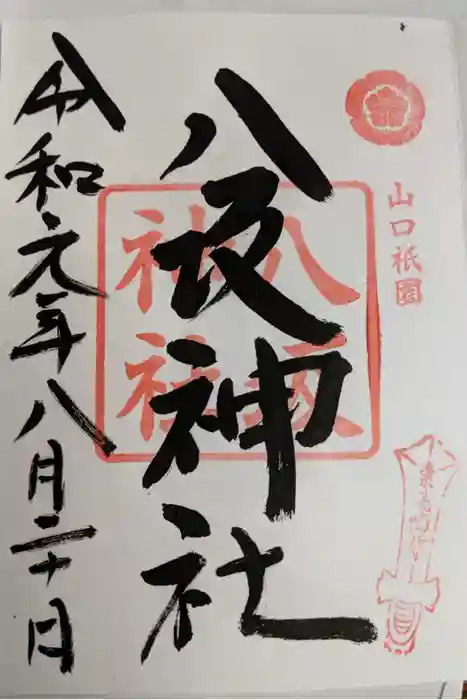 山口祇園
八坂神社
八坂
神社
令和元年八月二十日